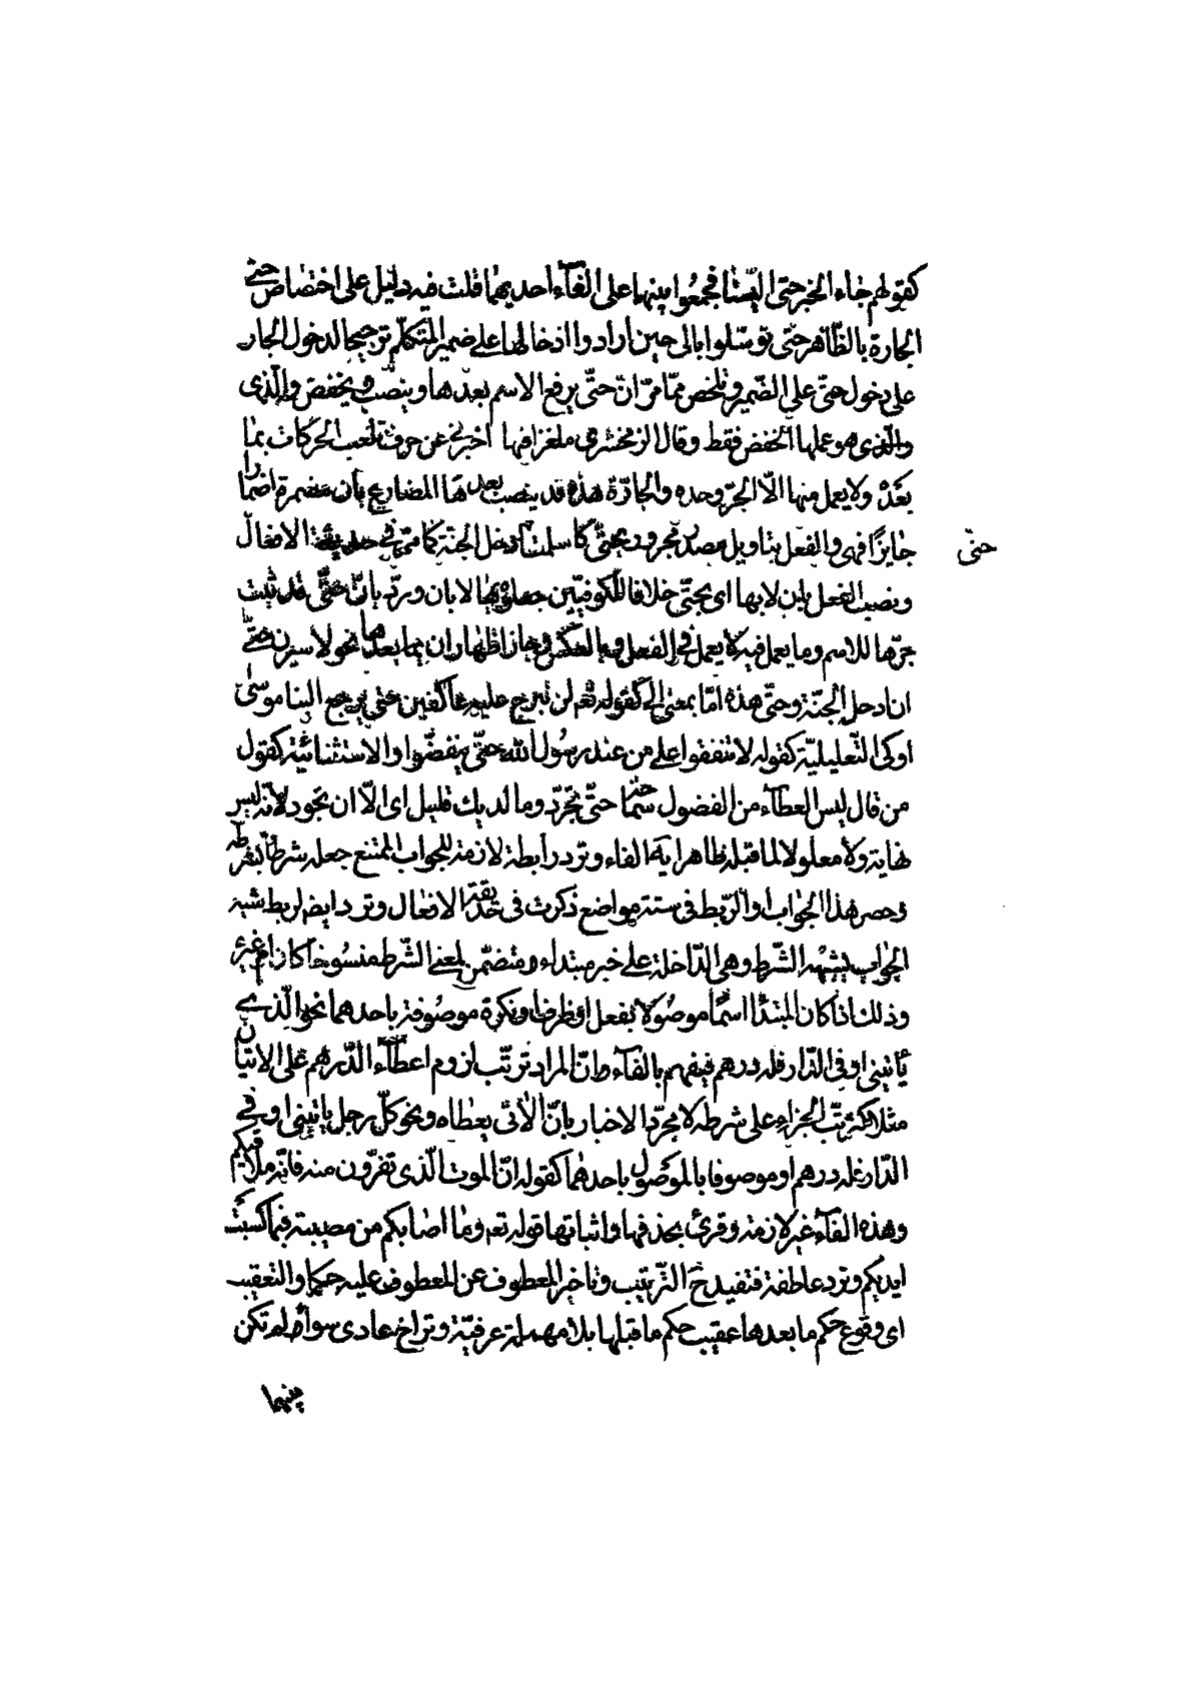 كقولهم جاء الخبر حتى الينا فجمعوا بينهما على الغآء احديهما قلت فيه دليل على اختصاص حتى
الجارة بالظاهر حتى توسّلوا بالى حين ارادوا ادخالها على ضمير المتكلّم ترجيحا لدخول الجار
على دخول حتى على الضمير وتلخص ممّا مرّ انّ حتّى يرفع الاسم بعدها وينصب ويخفض والذى
والذى هو عملها الخفض فقط وقال الزمخشرى ملغزا فيها اخبرنى عن حرف تلعب الحركات بما
بعده ولا يعمل منها الّا الجرّ وحده والجارّة هذه قد ينصب بعدها المضارع بأن مضمرة اضمارا
جايزًا فهى والفعل بتاويل مصدر مجرور بحتّى كاسلمت حتى ادخل الجنة كما مرّ فى حديقة الافعال
حتّى
ونصب الفعل بان لا بها اى بحتّى خلافا للكوفيّين جعلوه بها لا بان وردّ بانّ حتّى قد ثبت
جرّها للاسم وما يعمل فيه لا يعمل فى الفعل وبالعكس وجاز اظهار ان بما بعدها نحو لأسيرن حتّى
ان ادخل الجنّة وحتّى هذه امّا بمعنى الى كقوله تعم لن نبرح عليه عاكفين حتى يرجع الينا موسى
او كى التّعليليّة كقوله لا تنفقوا على من عند رسول الله حتّى ينفضّوا والاستثنائيّة كقول
من قال ليس العطآء من الفضول سماحة حتّى تجود وما لديك قليل اى الّا ان تجود لأنّه ليس
نهاية ولا معلولا لما قبله ظاهرا يه الفاء وترد رابطة لازمة للجواب الممتنع جعله شرطاً بشرطه
وحصر هذا الجواب او الرّبط فى ستة مواضع ذكرت فى حديقة الافعال وترد ايضا لربط شبه
الجواب بشبه الشّرط وهى الدّاخلة على خبر مبتداء متضمّن لمعنى الشّرط منسوخا كان ام غيره
وذلك اذا كان المبتدأ اسمًا موصُولا بفعل او ظرف او نكرة موصُوفة باحدهما نحو الّذى
يأتينى او فى الدّار فله درهم فيفهم بالفآء انّ المراد ترتّب لزوم اعطآء الدّرهم على الاتيان
مثلا كترتّب الجزاء على شرطه لا مجرّد الاخبار بانّ الأتى يعطاه ونحو كلّ رجل ياتينى او فى
الدّار فله درهم او موصوفا بالموصُول باحدهما كقوله انّ الموت الّذى تفرّون منه فانّه ملاقيكم
وهذه الفآء غير لازمة وقرئ بحذفها واثباتها قوله تعم وما اصابكم من مصيبة فبما كسبت
ايديكم وترد عاطفة فتفيد ح الترتيب وتاخير المعطوف عن المعطوف عليه حكما والتعقيب
اى وقوع حكم ما بعدها عقيب حكم ما قبلها بلا مهملة عرفيّة وتراخ عادى سواء لم تكن
بينهما